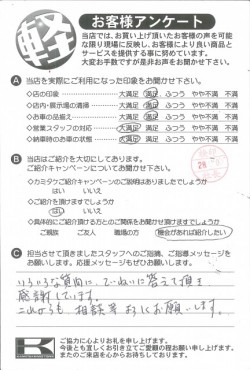 軽
お客様アンケート
当店では、お買い上げ頂いたお客様の声を可能
な限り現場に反映し、お客様により良い商品と
サービスを提供する事に努めています。
大変お手数ですが是非お声をお聞かせ下さい。
A 当店を実際にご利用になった印象をお聞かせ下さい。
◇店の印象 大満足 満足 ふつう やや不満 不満
◇店内・展示場の清掃 大満足 満足 ふつう やや不満 不満
◇お車の品揃え 大満足 満足 ふつう やや不満 不満
◇営業スタッフの対応 大満足 満足 ふつう やや不満 不満
◇納車時のお車の状態 大満足 満足 ふつう やや不満 不満
B 当店はご紹介を大切にしております。
ご紹介キャンペーンについてお聞かせ下さい。
◇カミタケご紹介キャンペーンのご説明はありましたでしょうか
はい いいえ
◇ご紹介を頂けますでしょうか
はい いいえ
◇具体的にご紹介頂ける方とのご関係をお聞かせ頂けますでしょうか
ご親族 ご友人 職場の方 機会があれば紹介したい
C 担当させて頂きましたスタッフへのご指摘、ご指導メッセージを
お願いします。応援メッセージもぜひお願いします。
いろいろな質問に、ていねいに答えて頂き
感謝しています。
これからも 相談等 よろしくお願いします。
K
ご協力に心よりお礼を申し上げます。
今後とも宜しくお引き立てご愛顧の程お願い申し上げます。
またのご来店を心からお待ちしております。